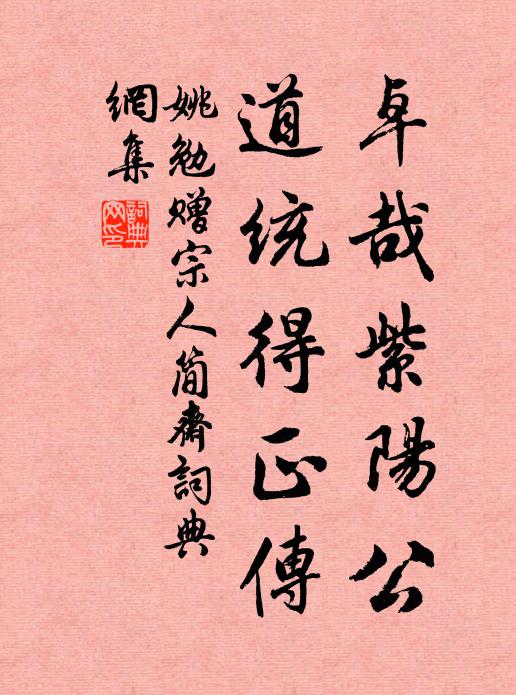 卓哉紫陽公
道統得正傳
姚勉贈宗人簡齋詞典
網集
詞典
网印